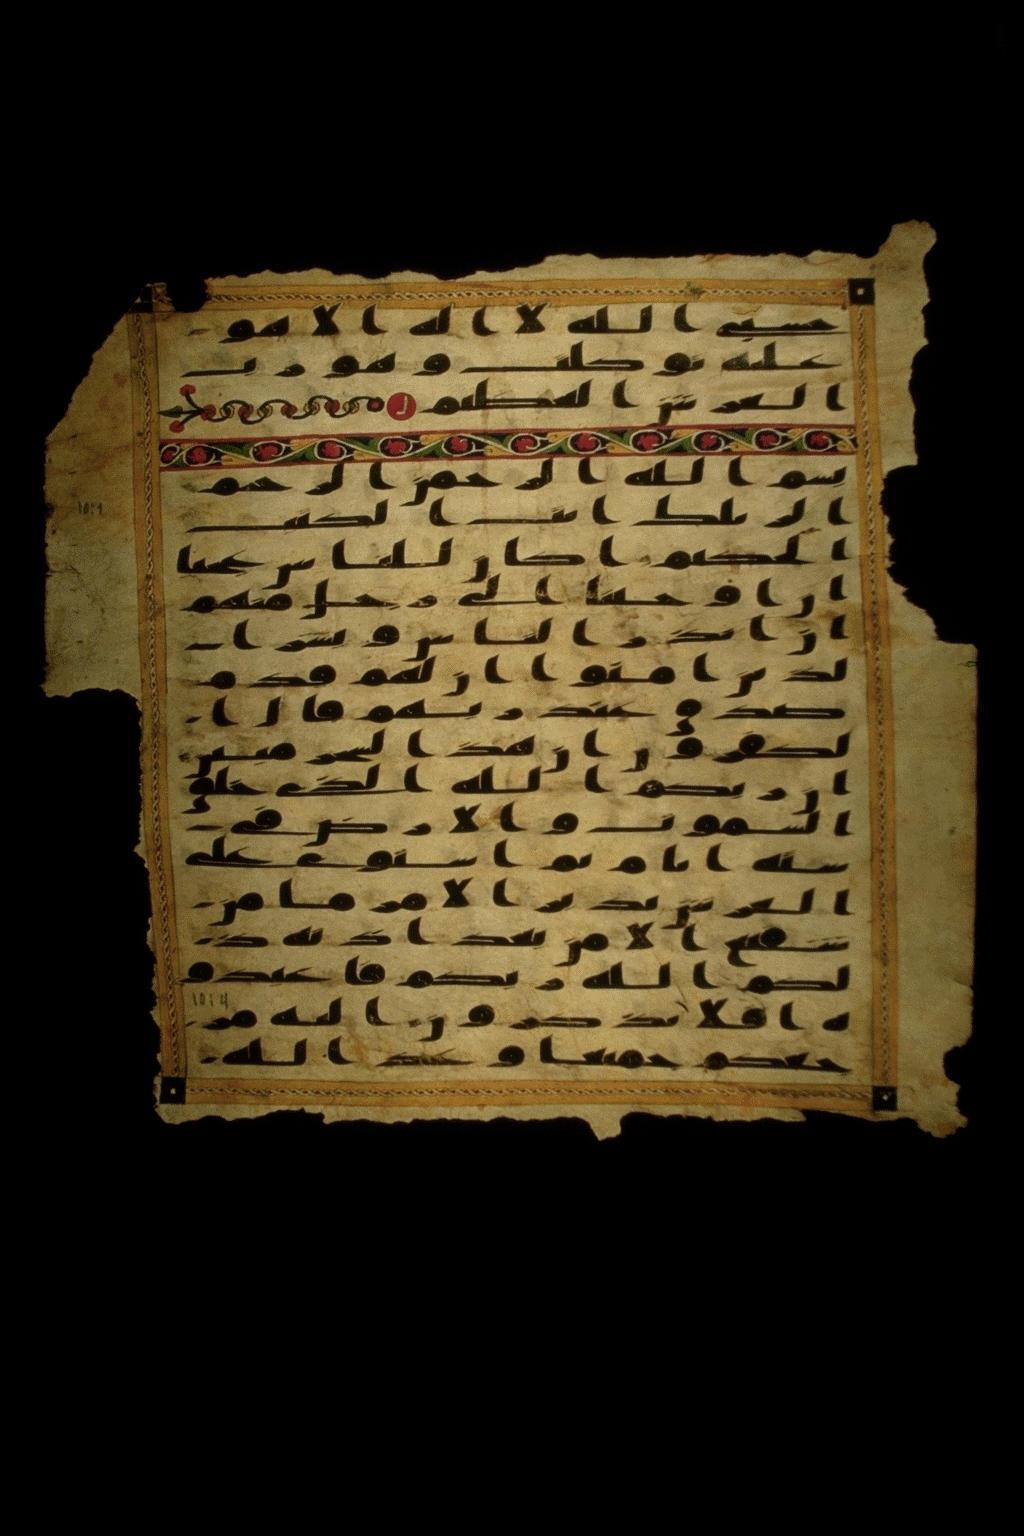 حسبي الله لا اله الا هو
عليه توكلت و هو رب
العرش العظيم
بسم الله الرحمن الرحيم
الر تلك ايت الكتب
الحكيم اكان للناس عجبا
ان اوحينا الى رجل منهم
ان انذر الناس وبشر ا
لذين امنوا ان لهم قدم
صدق عند ربهم قال ا
لكفرون ان هذا لسحر مبين
ان ربكم الله الذي خلق
السموت والارض في
ستة ايام ثم استوى على
العرش يدبر الامر ما من
شفيع الا من بعد اذنه ذ
لكم الله ربكم فاعبدو
ه افلا تذكرون اليه مر
جعكم جميعا وعد الله